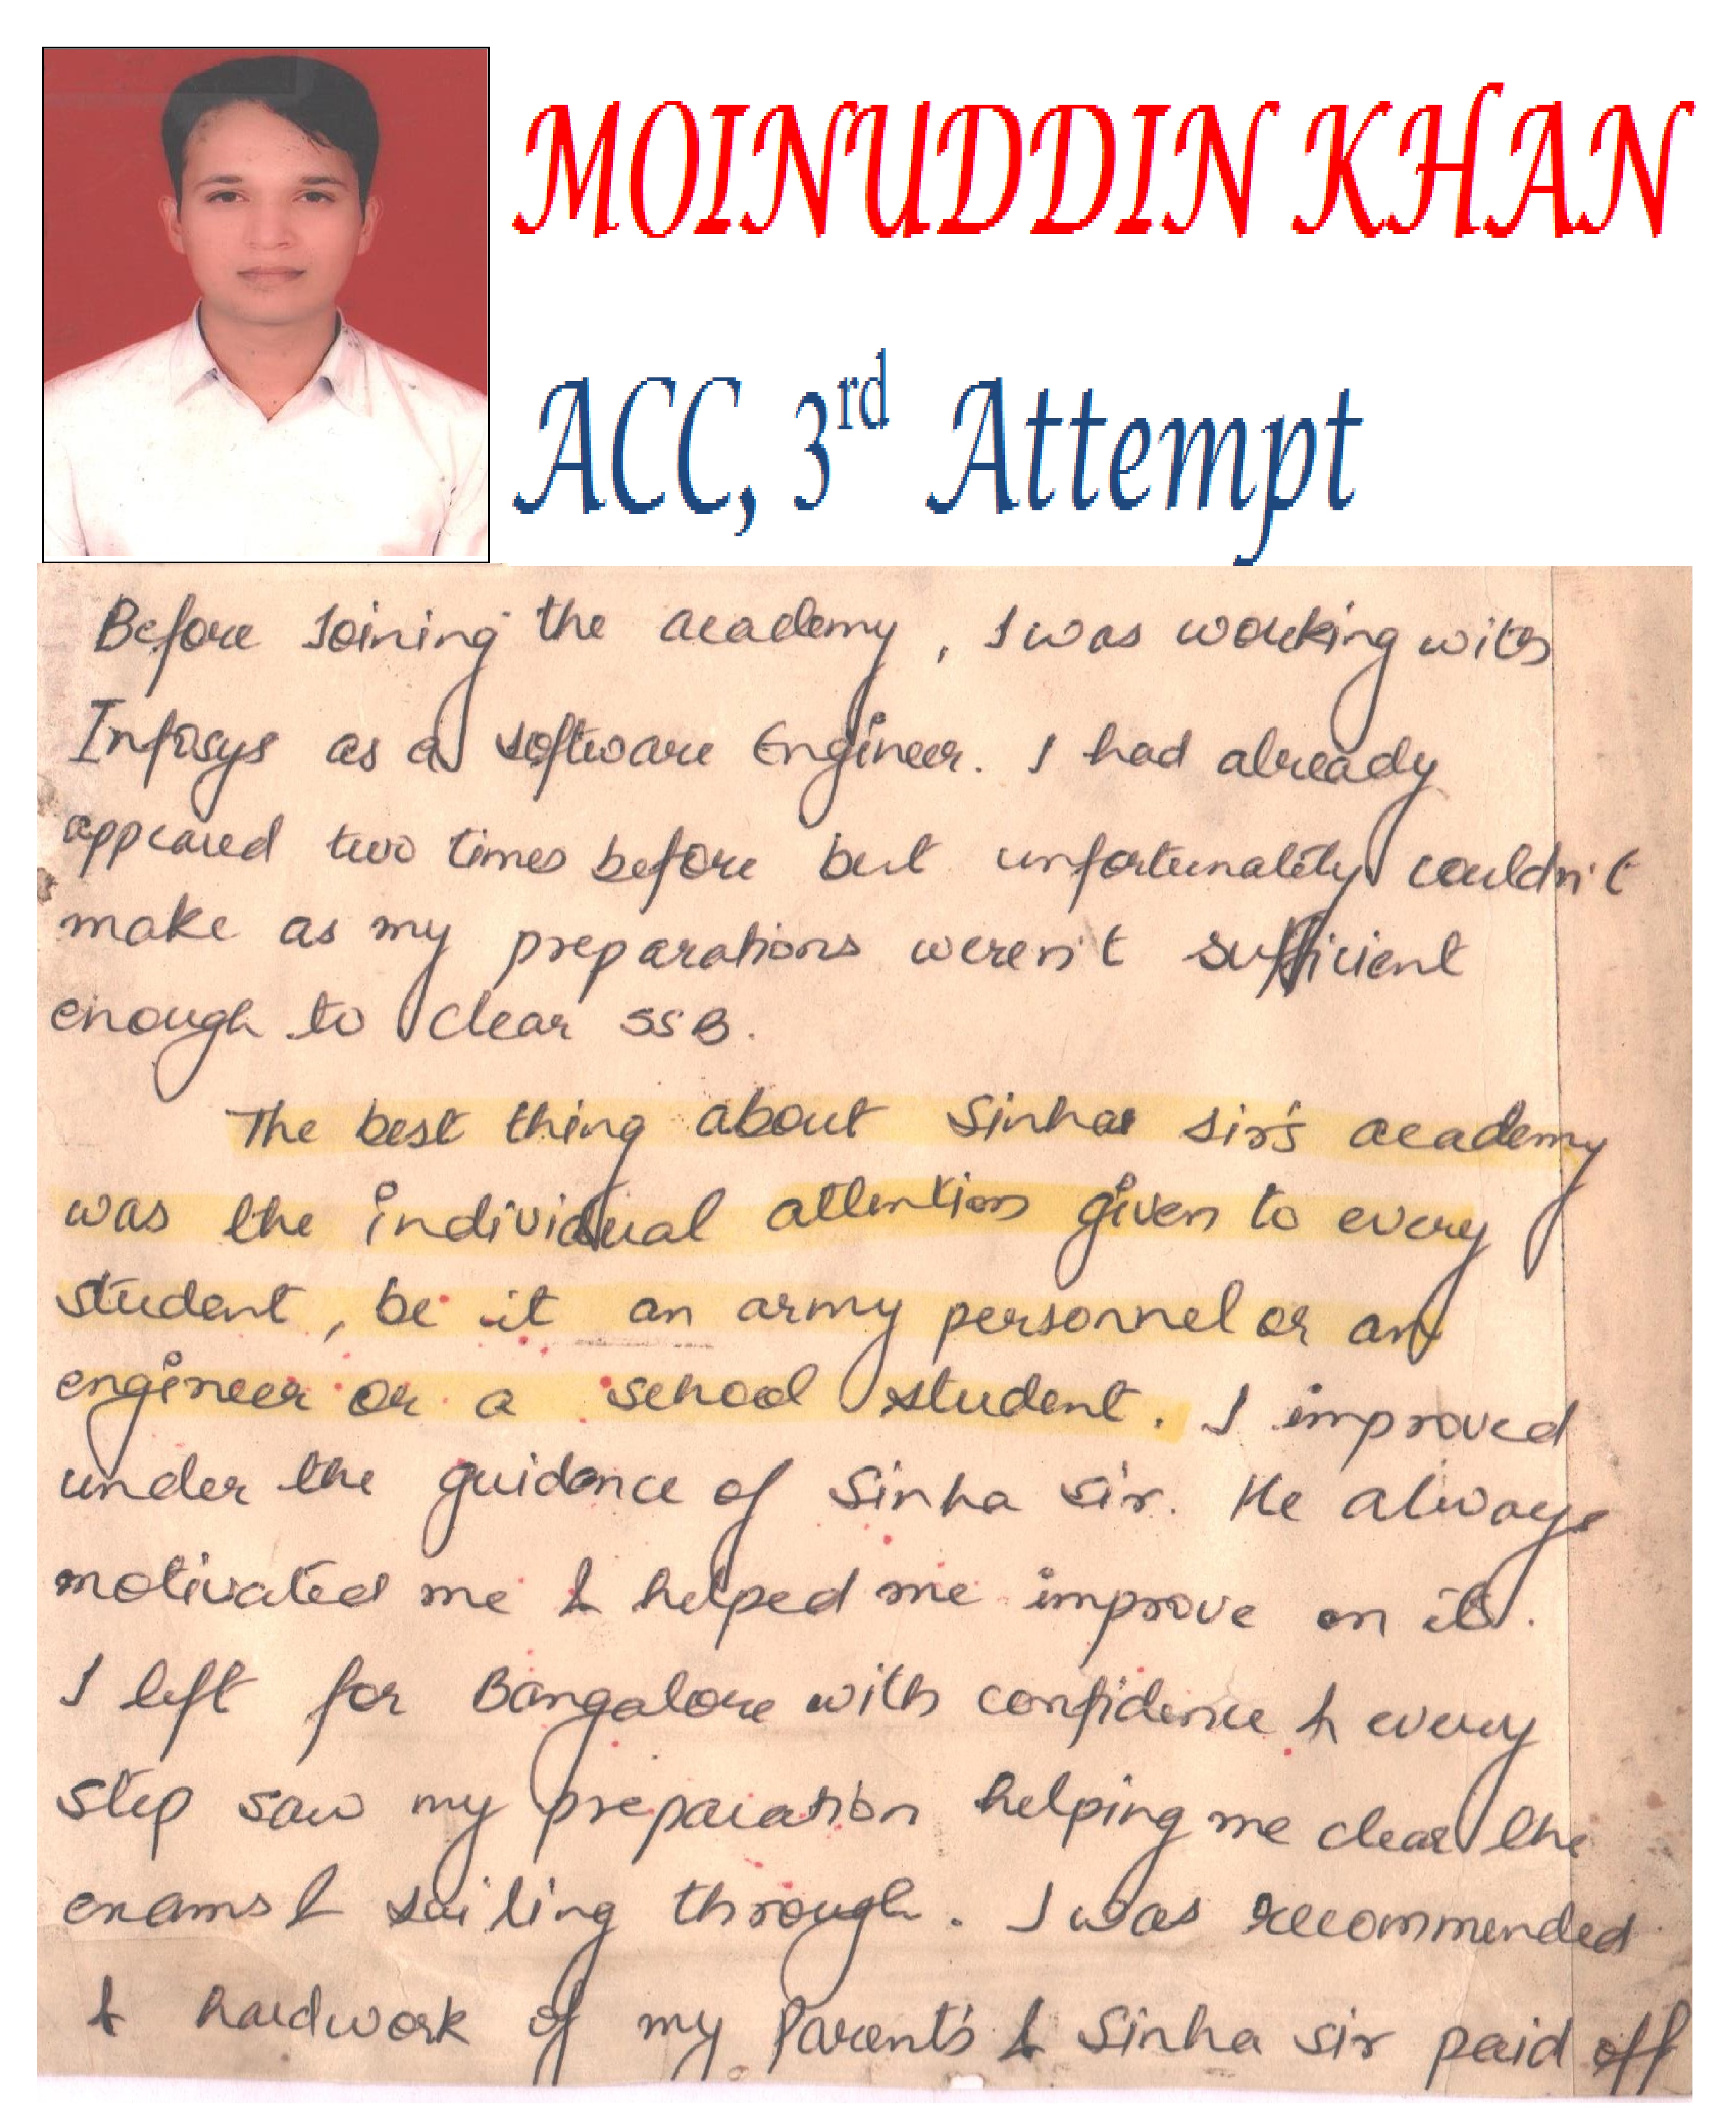 MOINUDDIN KHAN
ACC, 3rd Attempt
Before Joining the academy, I was working with
Infosys as a software Engineer. I had already
appeared two times before but unfortunately couldn't
make as my preparations weren't sufficient
enough to clear SSB.
The best thing about Sinha sir's academy
was the individual attention given to every
student, be it an army personnel or an
engineer or a school student. I improved
under the guidance of Sinha sir. He always
motivated me & helped me improve on it.
I left for Bangalore with confidence & every
step saw my preparation helping me clear the
exams & sailing through. I was recommended
& hardwork of my Parent's & Sinha sir paid off